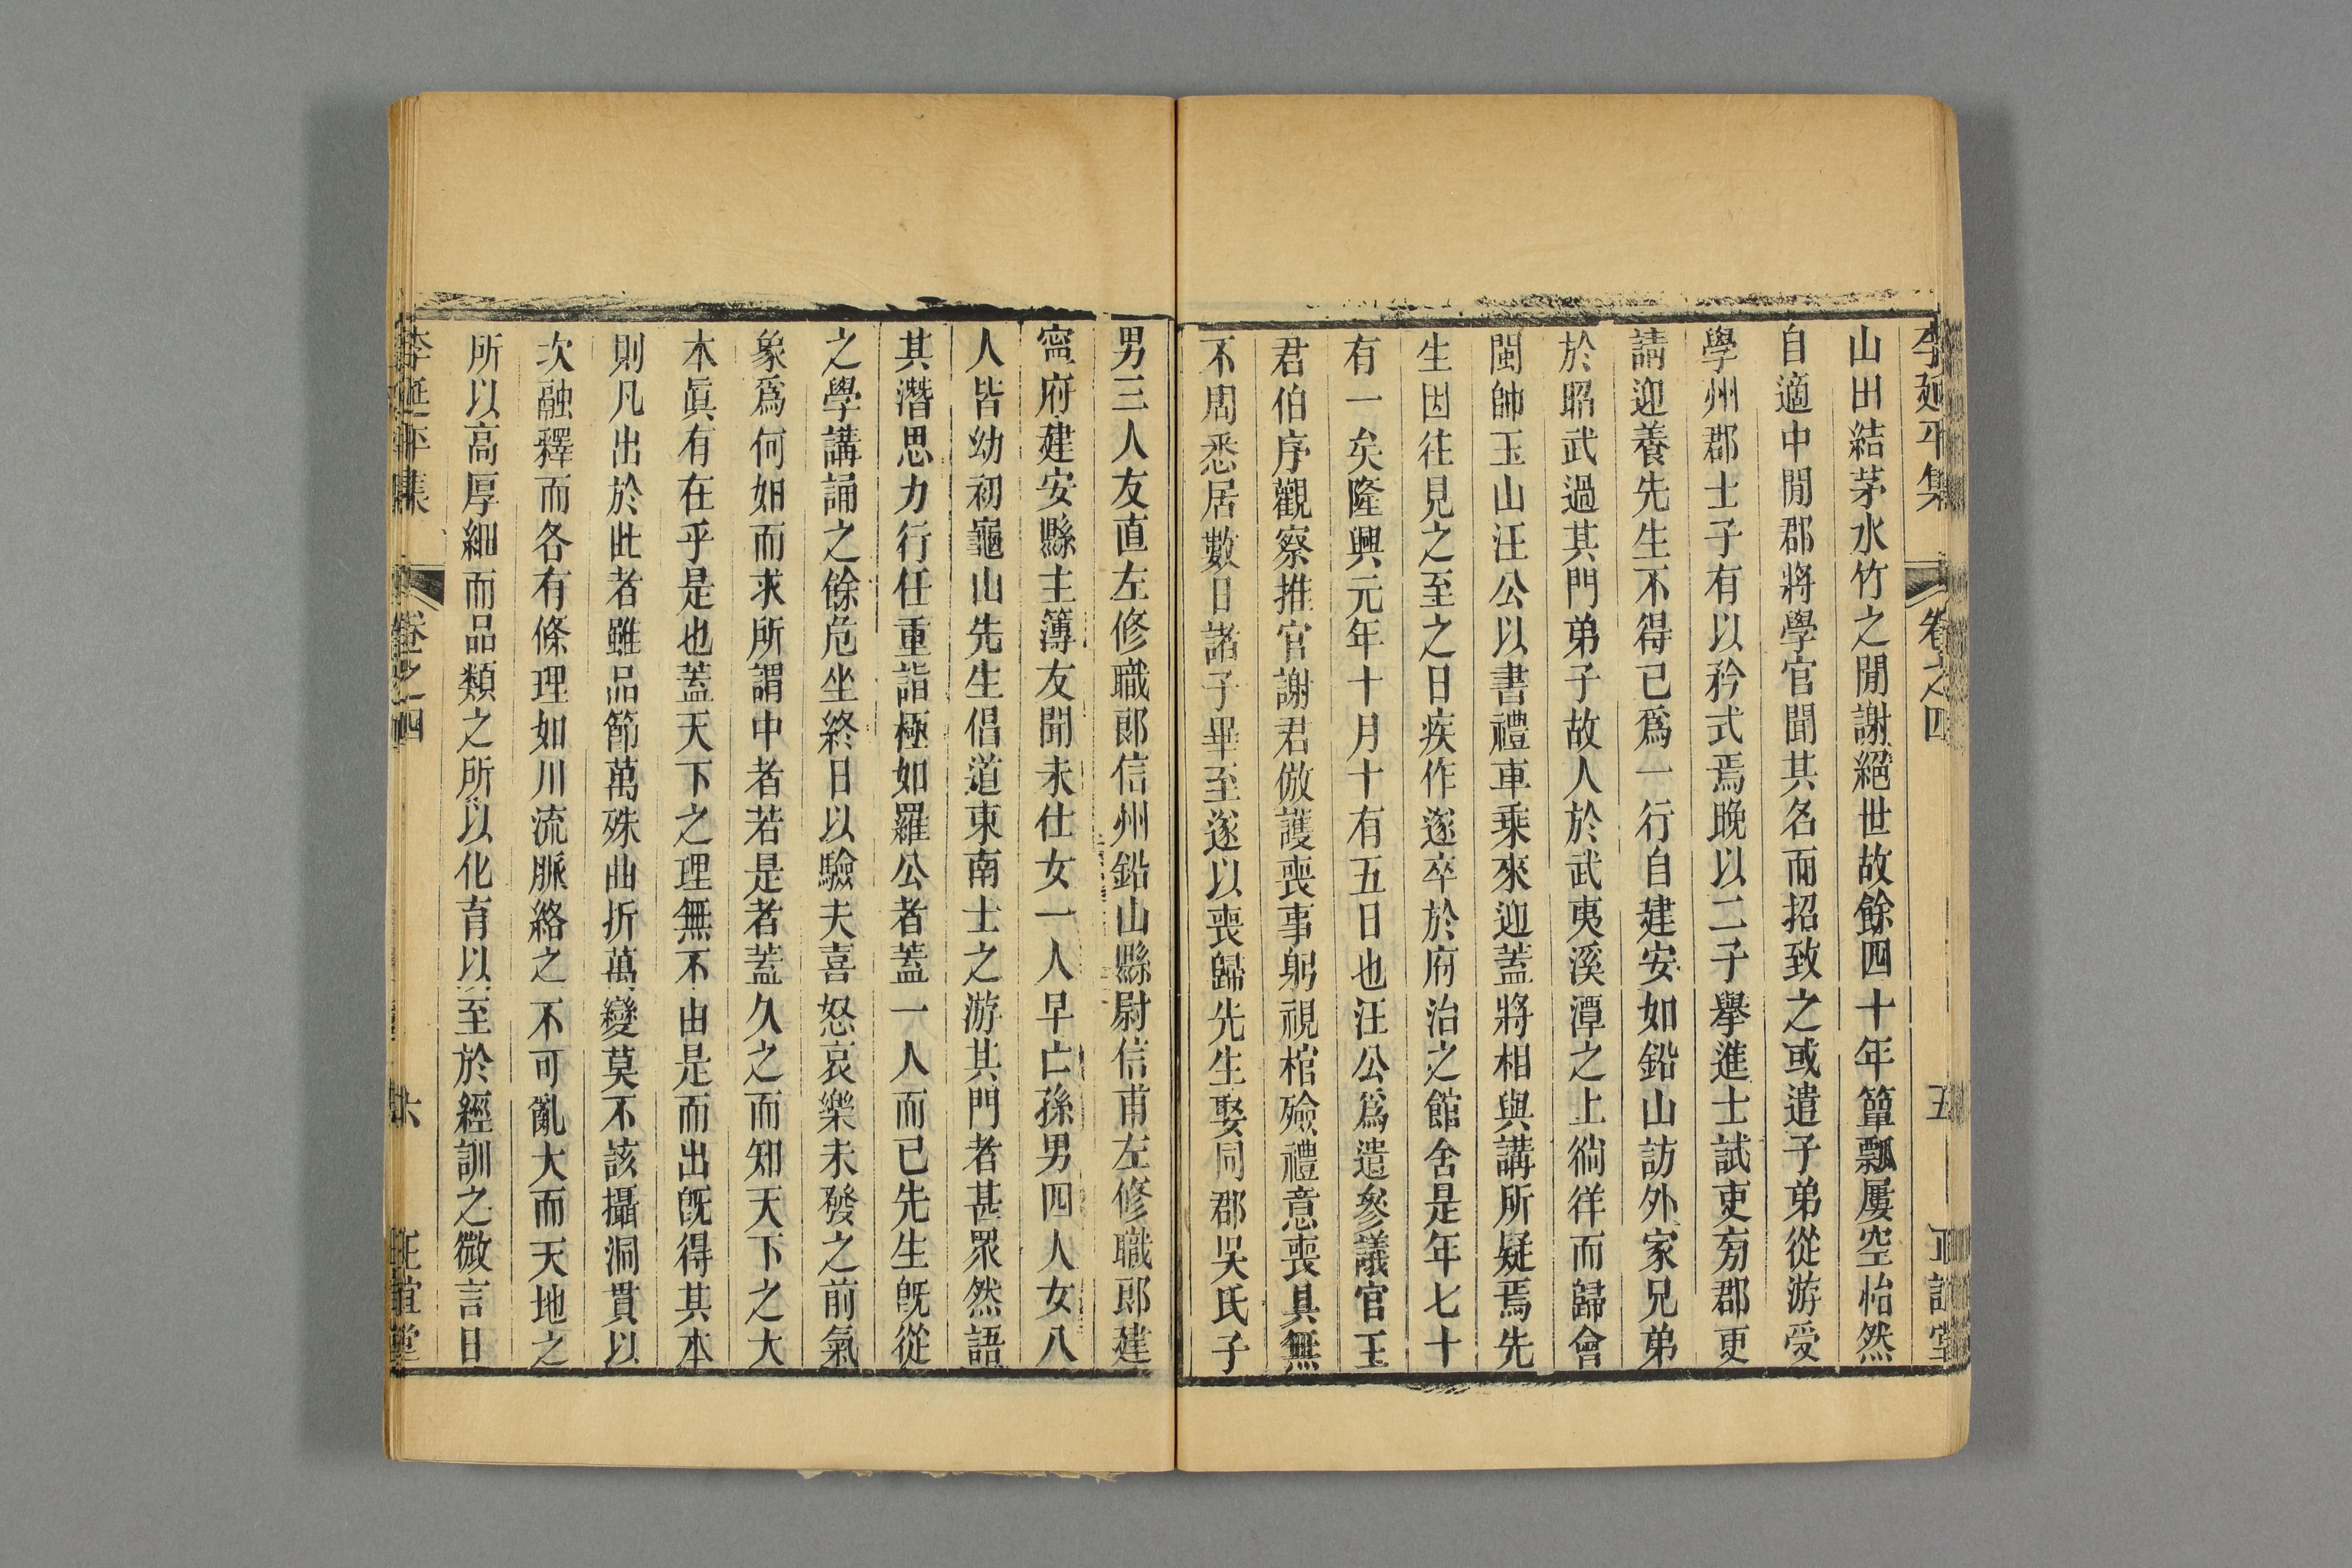 李延平集 卷之四 五 正誼堂
山田結茅水竹之閒謝絕世故餘四十年簞瓢屢空怡然
自適中閒郡將學官聞其名而招致之或遣子弟從游受
學州郡士子有以矜式焉晚以二子舉進士試吏旁郡更
請迎養先生不得已爲一行自建安如鉛山訪外家兄弟
於昭武過其門弟子故人於武夷溪潭之上徜徉而歸會
閩帥玉山汪公以書禮車乘來迎蓋將相與講所疑焉先
生因往見之至之日疾作遂卒於府治之館舍是年七十
有一矣隆興元年十月十有五日也汪公爲遣參議官王
君伯序觀察推官謝君倣護喪事躬視棺殮禮意喪具無
不周悉居數日諸子畢至遂以喪歸先生娶同郡吳氏子
男三人友直左修職郎信州鉛山縣尉信甫左修職郎建
寧府建安縣主簿友聞未仕女一人早亡孫男四人女八
人皆幼初龜山先生倡道東南士之游其門者甚眾然語
其潛思力行任重詣極如羅公者蓋一人而已先生旣從
之學講誦之餘危坐終日以驗夫喜怒哀樂未發之前氣
象爲何如而求所謂中者若是者蓋久之而知天下之大
本眞有在乎是也蓋天下之理無不由是而出旣得其本
則凡出於此者雖品節萬殊曲折萬變莫不該攝洞貫以
次融釋而各有條理如川流脈絡之不可亂大而天地之
所以高厚細而品類之所以化育以至於經訓之微言日
李延平集 卷之四 六 正誼堂